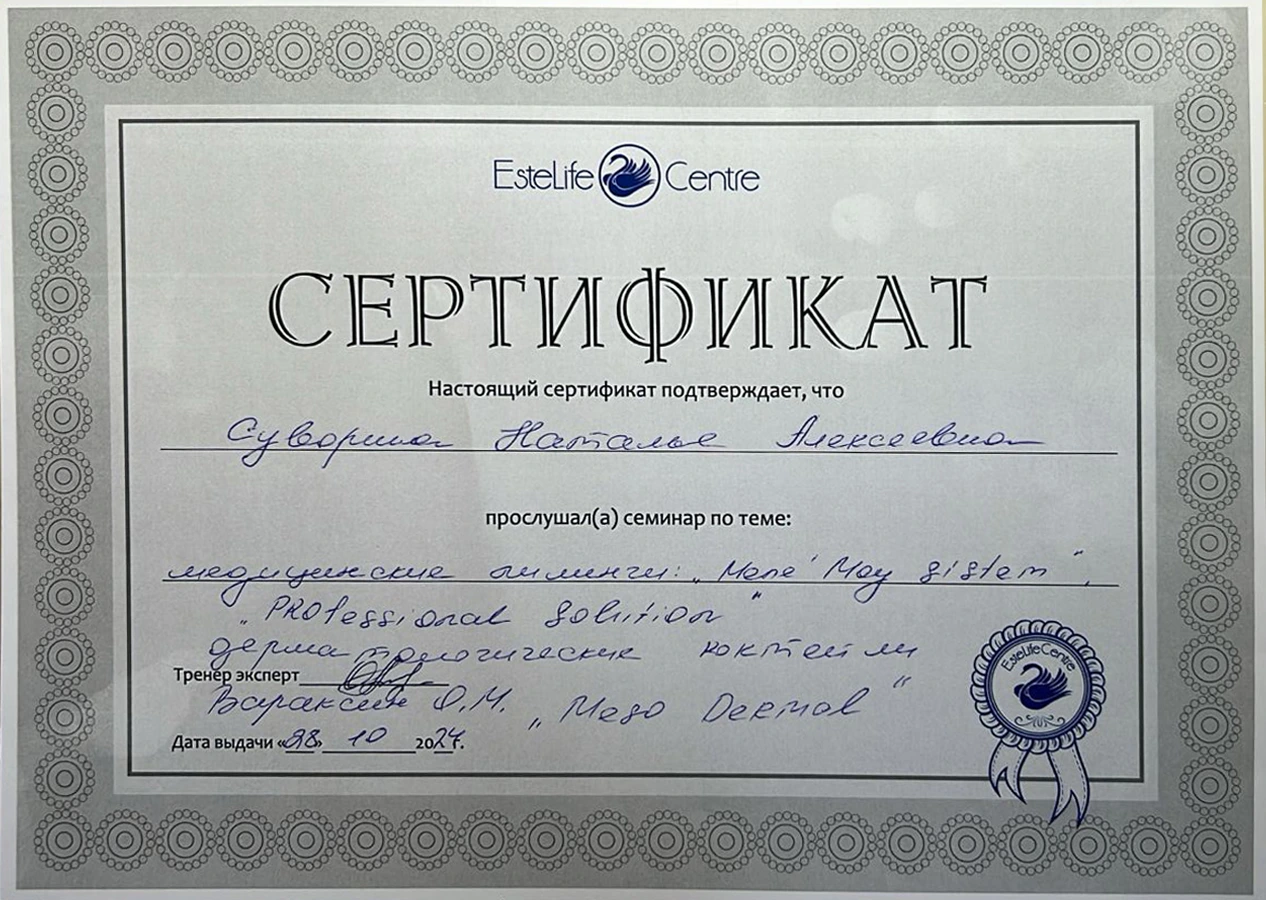 EsteLife Centre
СЕРТИФИКАТ
Настоящий сертификат подтверждает, что
Суворина Наталья Алексеевна
прослушал(а) семинар по теме:
медицинские пилинги: „Mene' Moy sistem",
„PROfessional Solution"
дерматологические коктейли
Тренер эксперт
Вараксин О.М. „Meso Dermal"
Дата выдачи «28» 10 2024г.
EsteLifeCentre